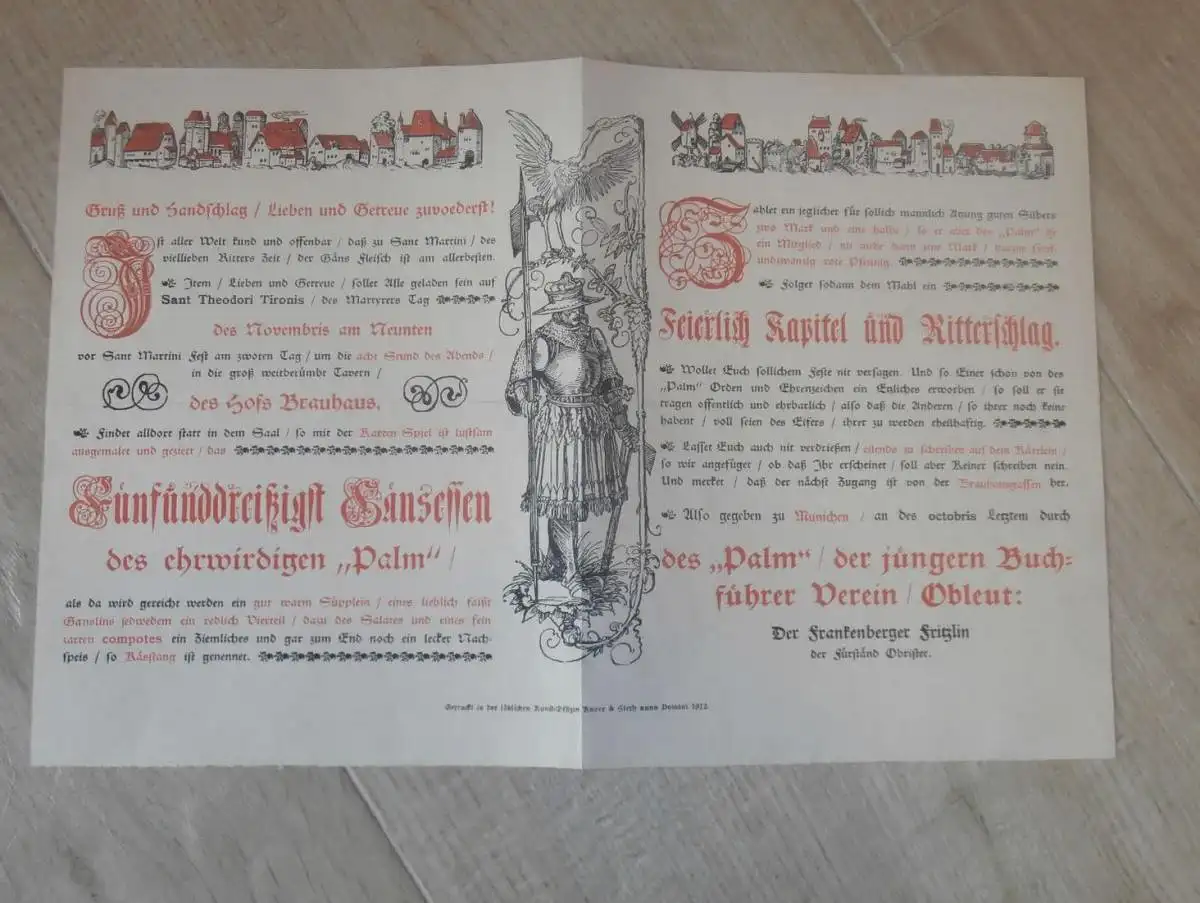 Gruß und Handschlag / Lieben und Getreue zuvoederst!
Ist aller Welt kund und offenbar / daß zu Sanct Martini / des
viellieben Ritters Zeit / der Gäns Fleisch ist am allerbesten.
Item / Lieben und Getreue / sollet Alle geladen sein auf
Sant Theodori Tironis / des Martyrers Tag
des Novembris am Neunten
vor Sanct Martini Fest am zwoten Tag / um die acht Stund des Abends /
in die groß weitberümbt Tavern /
des Hofs Brauhaus.
Findet alldort statt in dem Saal / so mit der Karten Spiel ist lustsam
ausgemalet und geziert / das
Fünfunddreißigst Gänsessen
des ehrwirdigen „Palm“ /
als da wird gereicht werden ein gut warm Süpplein / eines lieblich faißt
Ganslins jedwedem ein redlich Vierteil / dazu des Salates und eines fein
zarten compotes ein Ziemliches und gar zum End noch ein lecker Nach-
speis / so Kässtang ist genennet.
Zahlet ein jeglicher für sollich mannlich Atzung guten Silbers
zwo Mark und eine halbe / so er aber des „Palm“ ist
ein Mitglied / nit mehr dann Mark /
undzwanzig rote Pfennig.
Folget sodann dem Mahl ein
Feierlich Kapitel und Ritterschlag.
Wollet Euch sollichem Feste nit versagen. Und so Einer schon von des
„Palm“ Orden und Ehrenzeichen ein Etzliches erworben / so soll er sie
tragen offentlich und ehrbarlich / also daß die Anderen / so ihrer noch keine
habent / voll seien des Eifers / ihrer zu werden theilhaftig.
Lasset Euch auch nit verdrießen / eilends zu schreiben auf dem Kärtlein /
so wir angefüget / ob daß Ihr erscheinet / soll aber Keiner schreiben nein.
Und merket / daß der nächst Zugang ist von der Brauhausgassen her.
Also gegeben zu Munichen / an des octobris Letztem durch
des „Palm“ / der jüngern Buch-
führer Verein / Obleut:
Der Frankenberger Fritzlin
der Fürständ Obrister.
Getruckt in der löblichen Kunst-Offizin & anno Domini 1912.